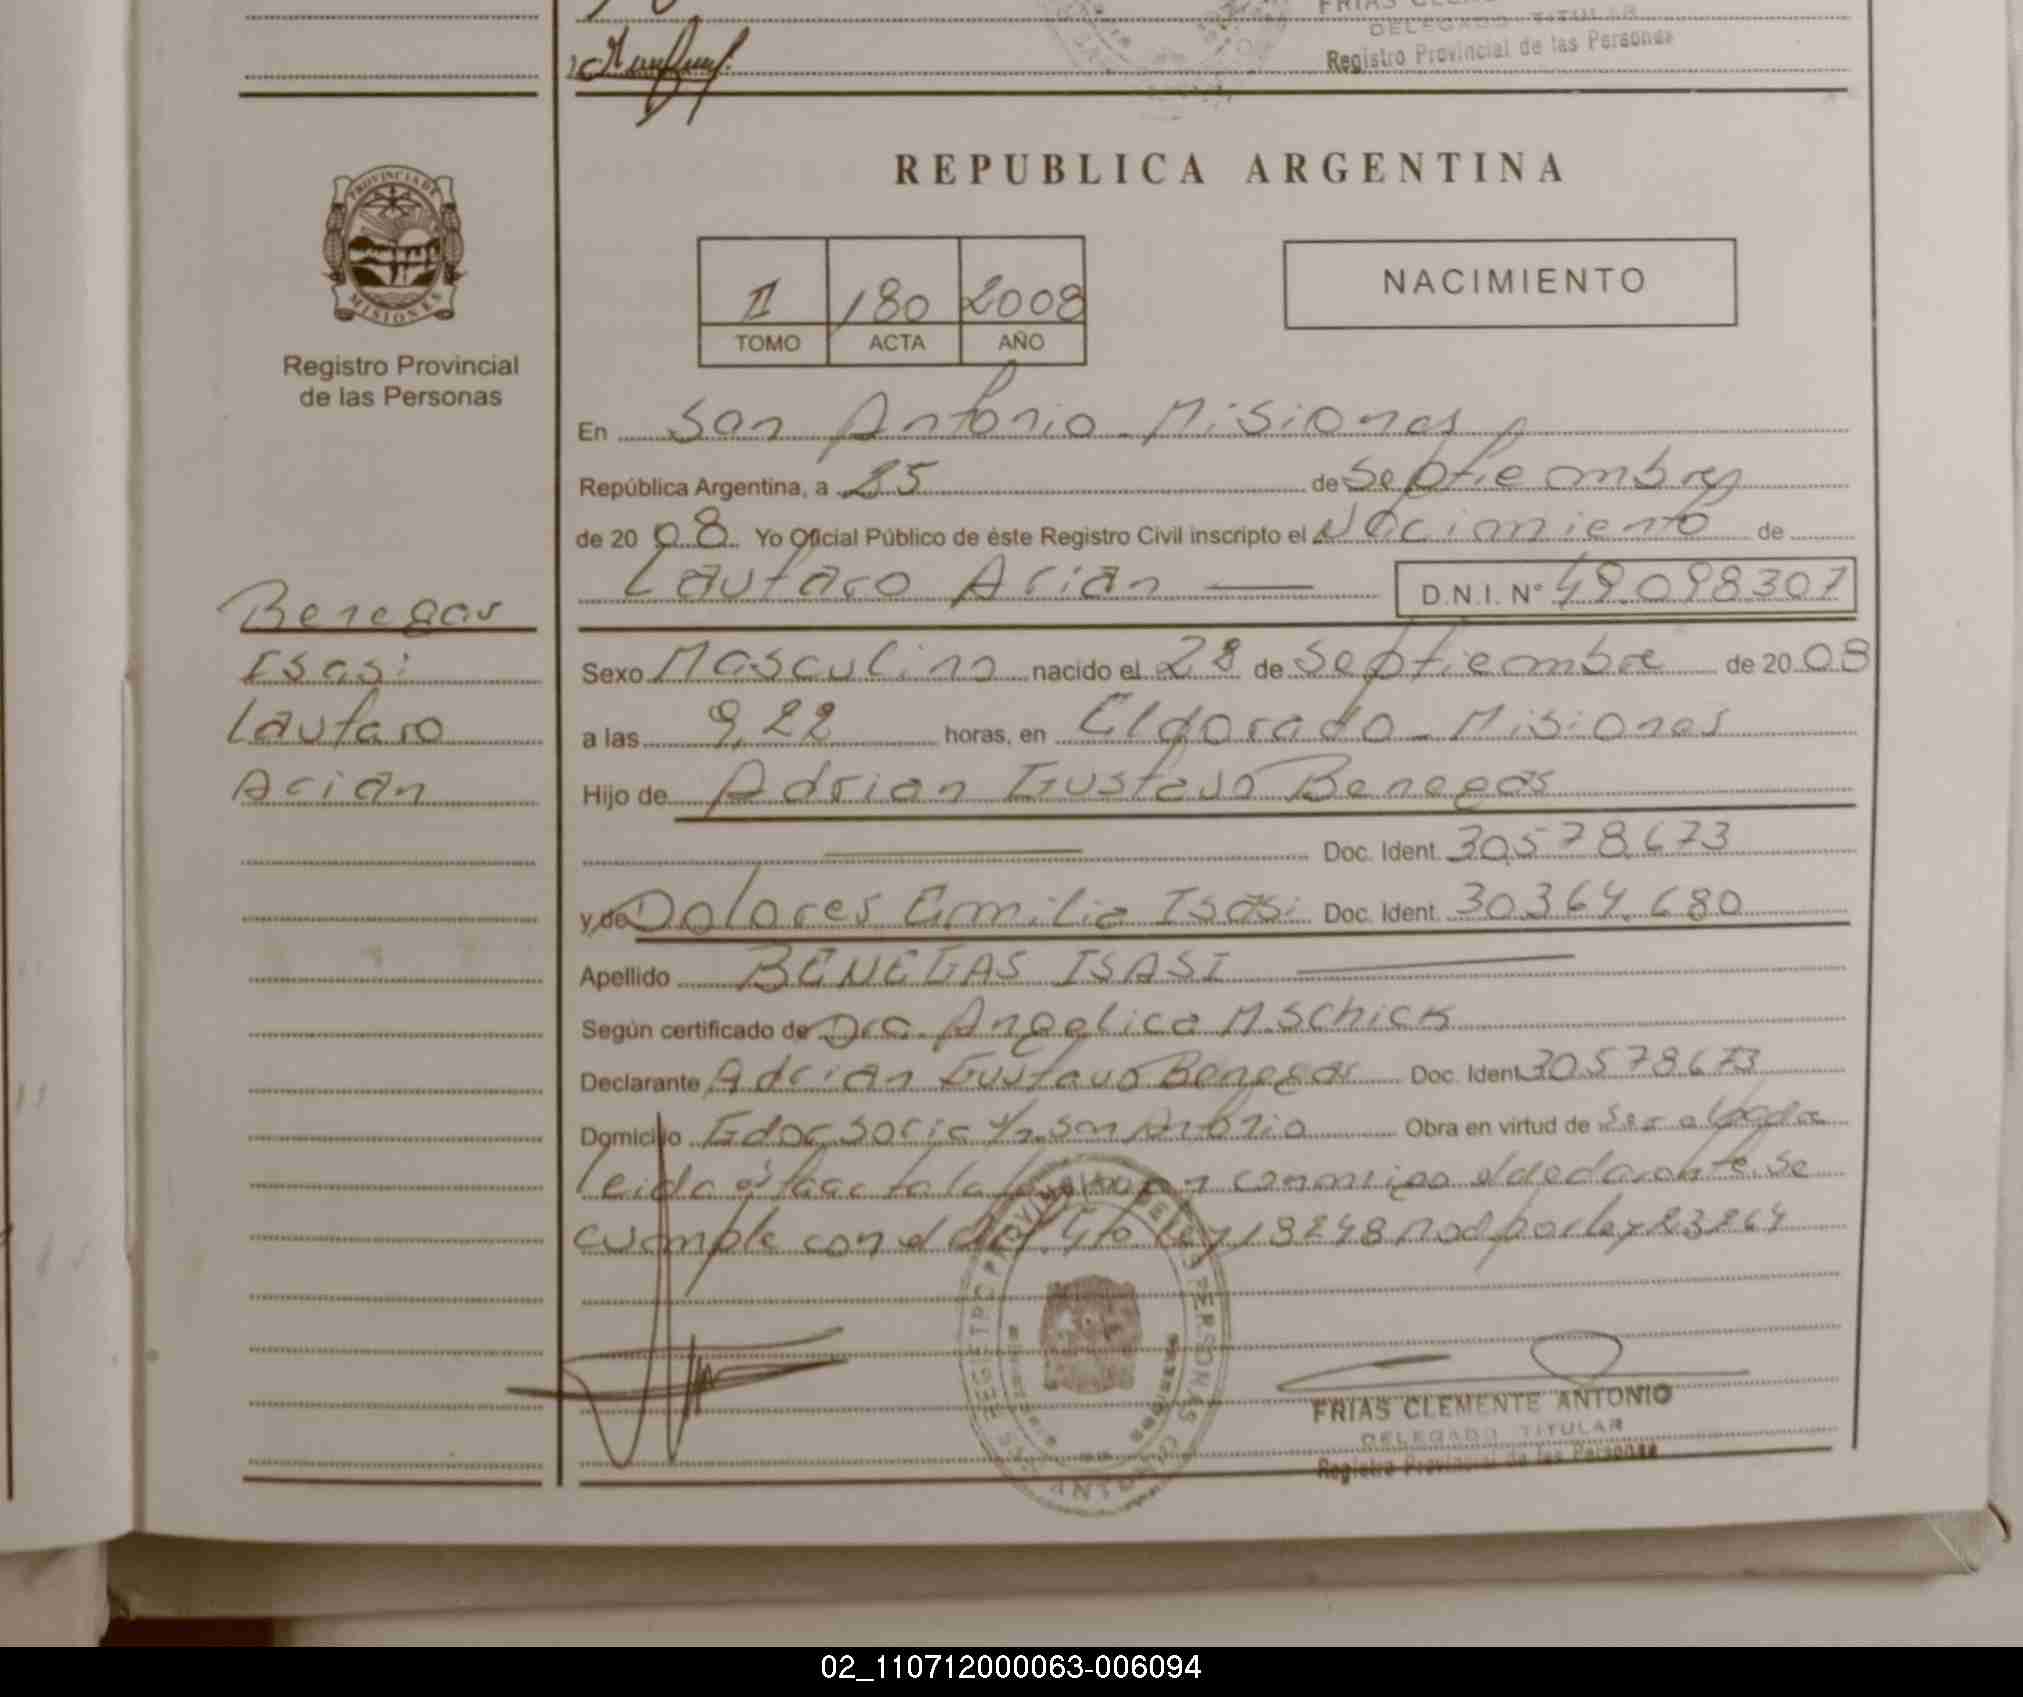 FRIAS CLEMENTE
DELEGADO TITULAR
Registro Provincial de las Personas
PROVINCIA DE
MISIONES
Registro Provincial
de las Personas
REPUBLICA ARGENTINA
II 180 2008
TOMO ACTA AÑO
NACIMIENTO
En San Antonio - Misiones
República Argentina, a 25 de Septiembre
de 20 08 Yo Oficial Público de éste Registro Civil inscripto el Nacimiento de
Lautaro Arian D.N.I. N° 49.098307
Benegas
Isasi
Lautaro
Arian
Sexo Masculino nacido el 28 de Septiembre de 20 08
a las 9,22 horas, en Eldorado - Misiones
Hijo de Adrian Gustavo Benegas
Doc. Ident. 30.578.673
y de Dolores Emilia Isasi Doc. Ident. 30.364.680
Apellido BENEGAS ISASI
Según certificado de Dra. Angelica M. Schick
Declarante Adrian Gustavo Benegas Doc. Ident. 30578673
Domicilio San Antonio Obra en virtud de
Leida el acta la conmigo el declarante. Se
cumple con el art. 4to. Ley 18248 mod por ley 23264
REGISTRO PROVINCIAL DE LAS PERSONAS
FRIAS CLEMENTE ANTONIO
DELEGADO TITULAR
Registro Provincial de las Personas
02_110712000063-006094